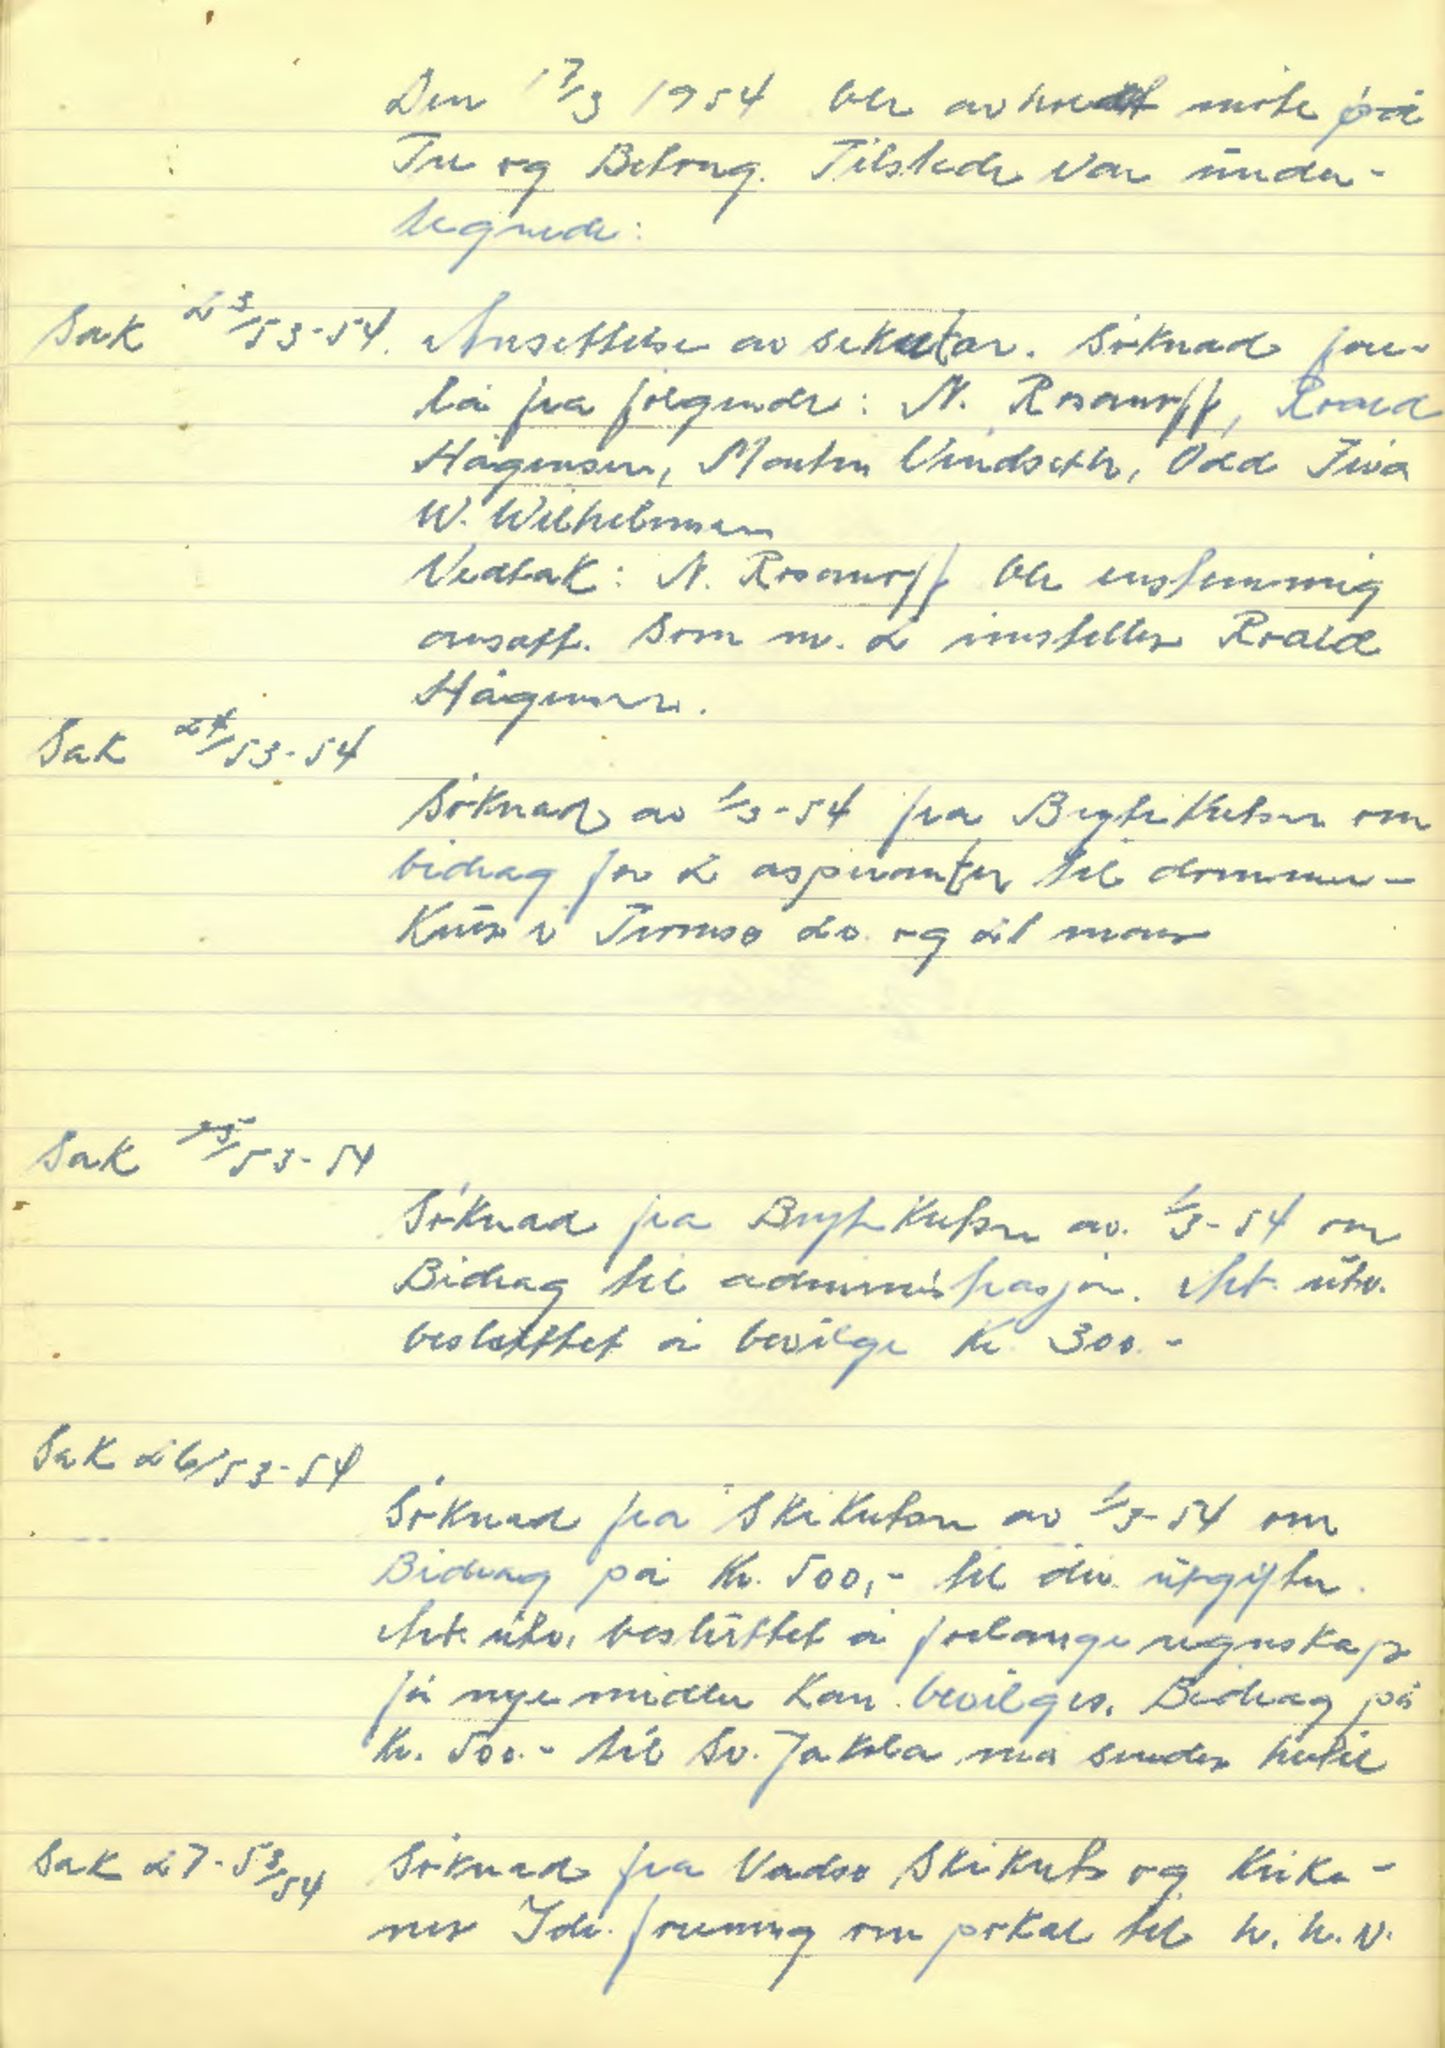 Den 17/3 1954 ble avholdt möte på
Tre og Betong. Tilstede var under-
tegnede:
Sak 23/53-54. Ansettelse av sekretær. Söknad fore-
lå fra fölgende: N. Rosanoff, Roald
Hågensen, Morten Vindseth, Odd Ivar
W. Wilhelmsen
Vedtak: N. Rosanoff ble enstemmig
ansatt. Som nr. 2 innstilles Roald
Hågensen.
Sak 24/53-54
Söknad av 1/3-54 fra Brytekretsen om
bidrag for 2 aspiranter til dommer-
kurs i Tromsö 20. og 21 mars
Sak 25/53-54
Söknad fra Brytekretsen av 1/3-54 om
Bidrag til administrasjon. Arb. utv.
besluttet å bevilge kr. 300.-
Sak 26/53-54
Söknad fra Skikretsen av 1/3-54 om
Bidrag på Kr. 500,- til div. utgifter.
Arb. utv. besluttet å forlange regnskap
för nye midler kan bevilges. Bidrag på
Kr. 500.- til Sv. Jakola må sendes hertil
Sak 27-53/54 Söknad fra Vadsö Skikrets og Kirke-
nes Idr. forening om pokal til h. h. v.